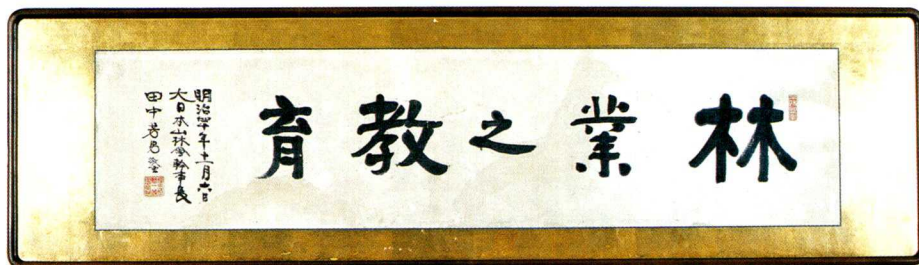 林業之教育
明治四十年十一月六日
大日本山林会幹事長
田中芳男